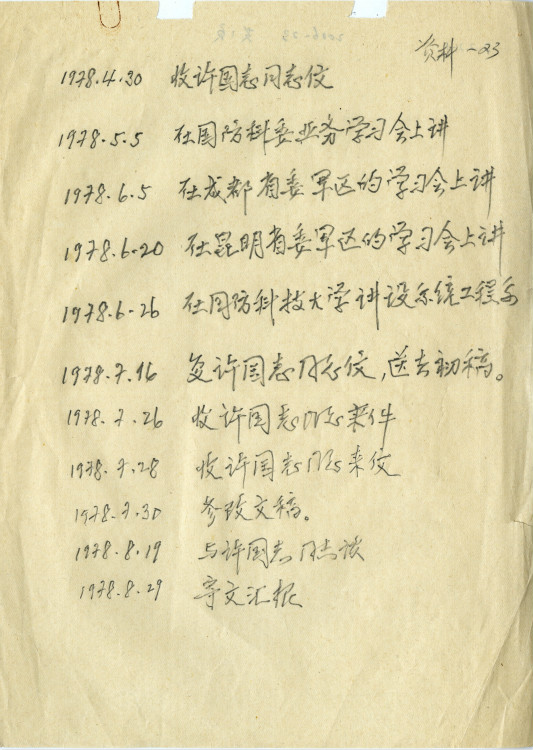 资料-23
1978.4.30 收许国志同志信
1978.5.5 在国防科委业务学习会上讲
1978.6.5 在成都省委军区的学习会上讲
1978.6.20 在昆明省委军区的学习会上讲
1978.6.26 在国防科技大学讲设系统工程系
1978.7.16 复许国志同志信，送去初稿。
1978.7.26 收许国志同志来件
1978.7.28 收许国志同志来信
1978.7.30 修改文稿。
1978.8.19 与许国志同志谈
1978.8.29 寄文汇报